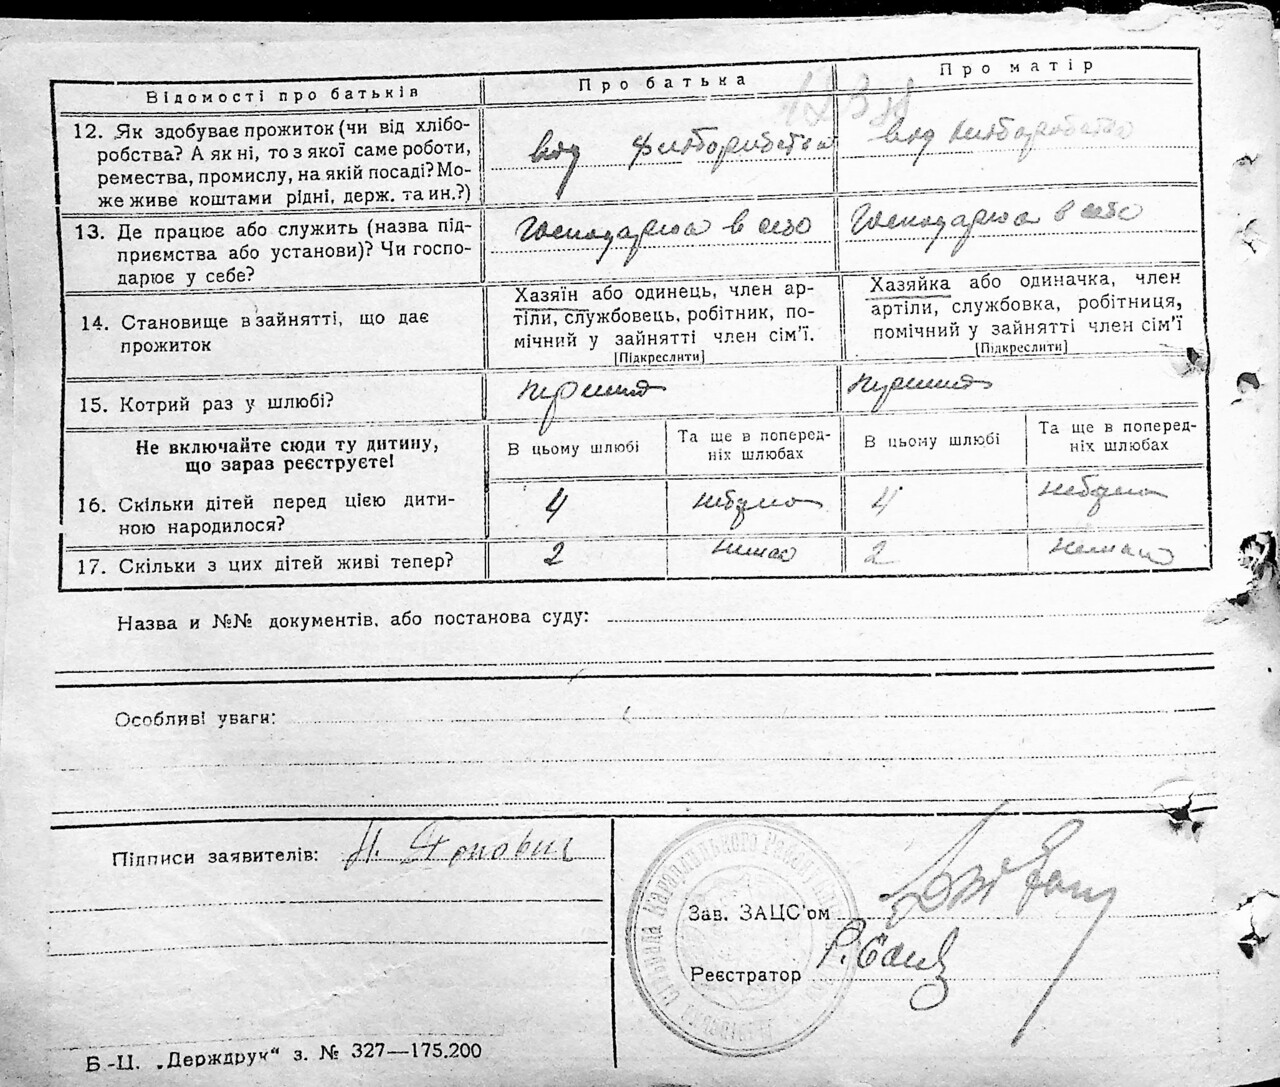 Відомості про батьків
Про батька
Про матір
12. Як здобуває прожиток (чи від хлібо-
робства? А як ні, то з якої саме роботи,
ремества, промислу, на якій посаді? Мо-
же живе коштами рідні, держ. та ин.?)
від хліборобства
від хліборобства
13. Де працює або служить (назва під-
приємства або установи)? Чи госпо-
дарює у себе?
Господарює в себе
Господарює в себе
14. Становище в зайнятті, що дає
прожиток
Хазяїн або одинець, член ар-
тіли, службовець, робітник, по-
мічний у зайнятті член сім'ї.
[Підкреслити]
Хазяйка або одиначка, член
артіли, службовка, робітниця,
помічний у зайнятті член сім'ї
[Підкреслити]
15. Котрий раз у шлюбі?
перший
перший
Не включайте сюди ту дитину,
що зараз реєструєте!
В цьому шлюбі
Та ще в поперед-
ніх шлюбах
В цьому шлюбі
Та ще в поперед-
ніх шлюбах
16. Скільки дітей перед цією дити-
ною народилося?
4
небуло
4
небуло
17. Скільки з цих дітей живі тепер?
2
немає
2
немає
Назва и №№ документів, або постанова суду:
Особливі уваги:
Підписи заявителів:
Зав. ЗАЦС'ом
Реєстратор
Б-Ц. „Держдрук" з. № 327—175.200